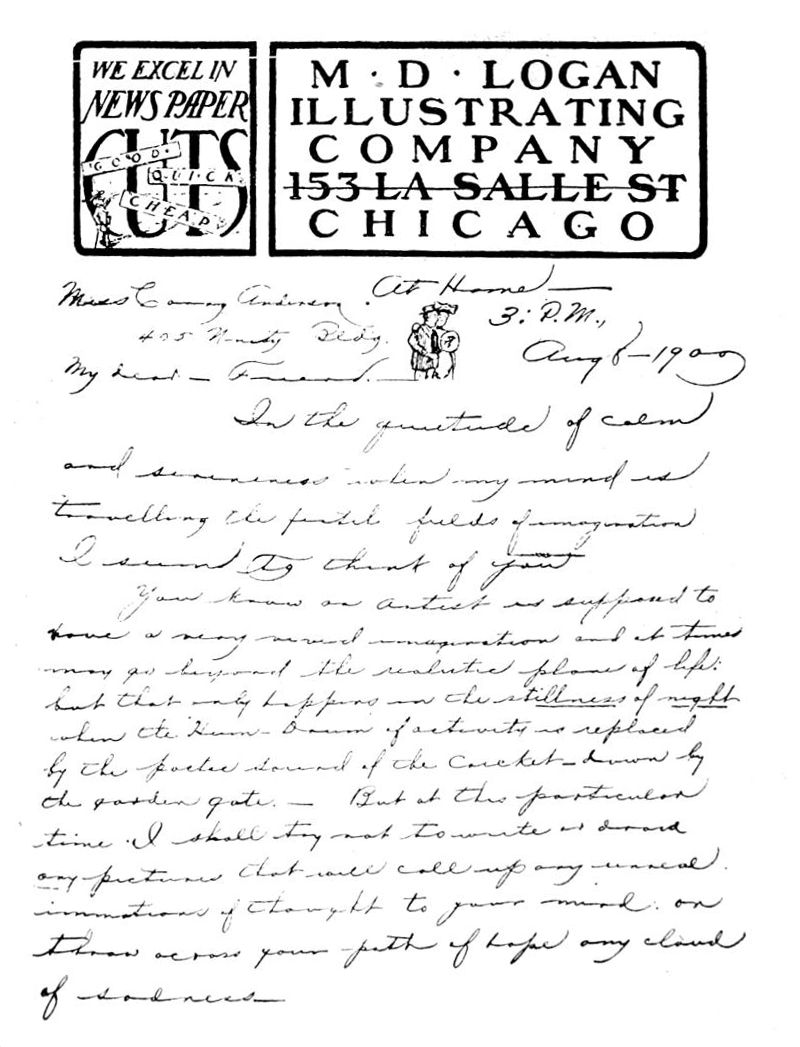 WE EXCEL IN
NEWSPAPER
CUTS
GOOD
QUICK
CHEAP
M · D · LOGAN
ILLUSTRATING
COMPANY
153 LA SALLE ST
CHICAGO
At Home —
3: P.M.,
Miss Anderson
405 Bldg.
Aug 8 — 1900
My dear — Friend. —
In the quietude of calm
and sereneness when my mind is
travelling the fertil fields of imagination
I seem to think of you
You know an artist is supposed to
have a very vivid imagination and at times
may go beyond the realistic plane of life:
but that only happens in the stillness of night
when the Hum-Drum of activity is replaced
by the poetic sound of the Cricket — down by
the garden gate. — But at this particular
time I shall try not to write or draw
any pictures that will call up any unreal
of thought to your mind. or
throw across your path of hope any cloud
of sadness —